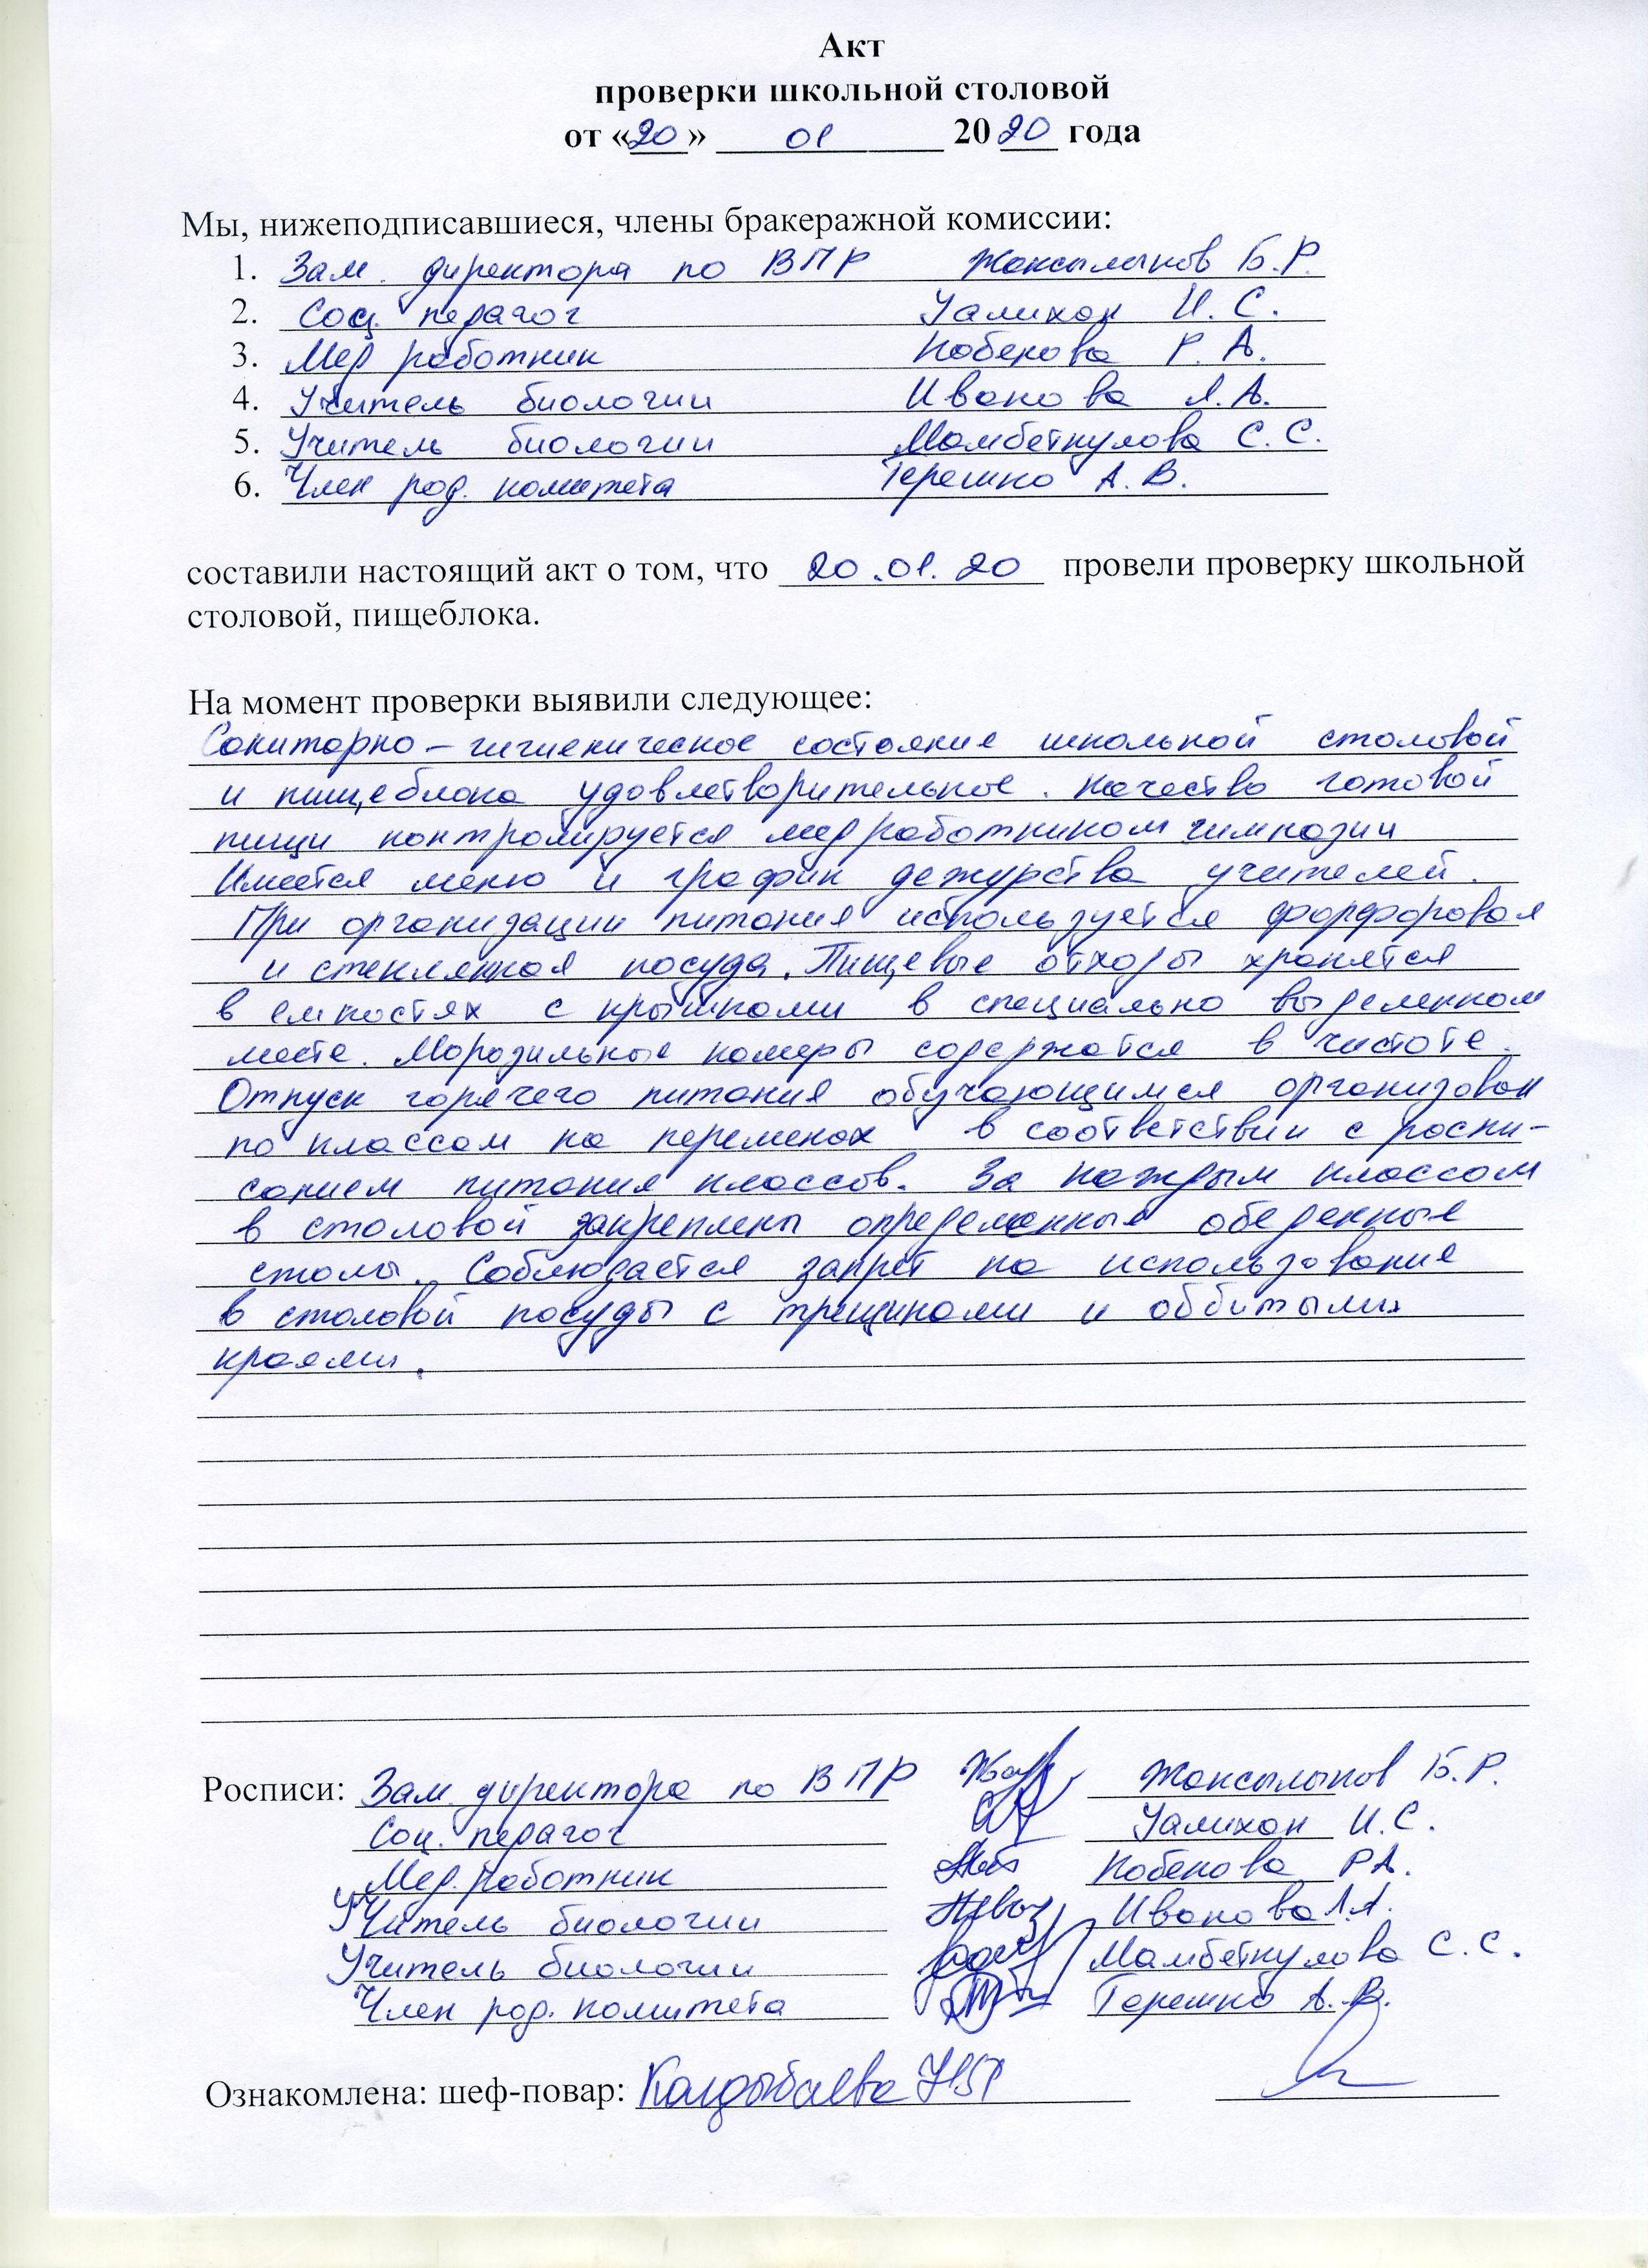 Акт
проверки школьной столовой
от «20» 01 2020 года
Мы, нижеподписавшиеся, члены бракеражной комиссии:
1. Зам. директора по ВПР Жаксылыков Б.Р.
2. Соц. педагог Уалихан И. С.
3. Мед работник Кобекова Р. А.
4. Учитель биологии Иванова Л.А.
5. Учитель биологии Мамбеткулова С. С.
6. Член род. комитета Терешко А. В.
составили настоящий акт о том, что 20.01.20 провели проверку школьной
столовой, пищеблока.
На момент проверки выявили следующее:
Санитарно – гигиеническое состояние школьной столовой
и пищеблока удовлетворительное. Качество готовой
пищи контролируется медработником гимназии
Имеется меню и график дежурства учителей.
При организации питания используется фарфоровая
и стеклянная посуда. Пищевые отходы хранятся
в емкостях с крышками в специально выделенном
месте. Морозильные камеры содержатся в чистоте.
Отпуск горячего питания обучающимся организован
по классам на переменах в соответствии с распи-
санием питания классов. За каждым классом
в столовой закреплены определенные обеденные
столы. Соблюдается запрет на использование
в столовой посуды с трещинами и оббитыми
краями.
Росписи: Зам. директора по ВПР Жаксылыков Б.Р.
Соц. педагог Уалихан И.С.
Мед. работник Кобекова Р.А.
Учитель биологии Иванова Л.А.
Учитель биологии Мамбеткулова С.С.
Член род. комитета Терешко А.В.
Ознакомлена: шеф-повар: Калдыбаева